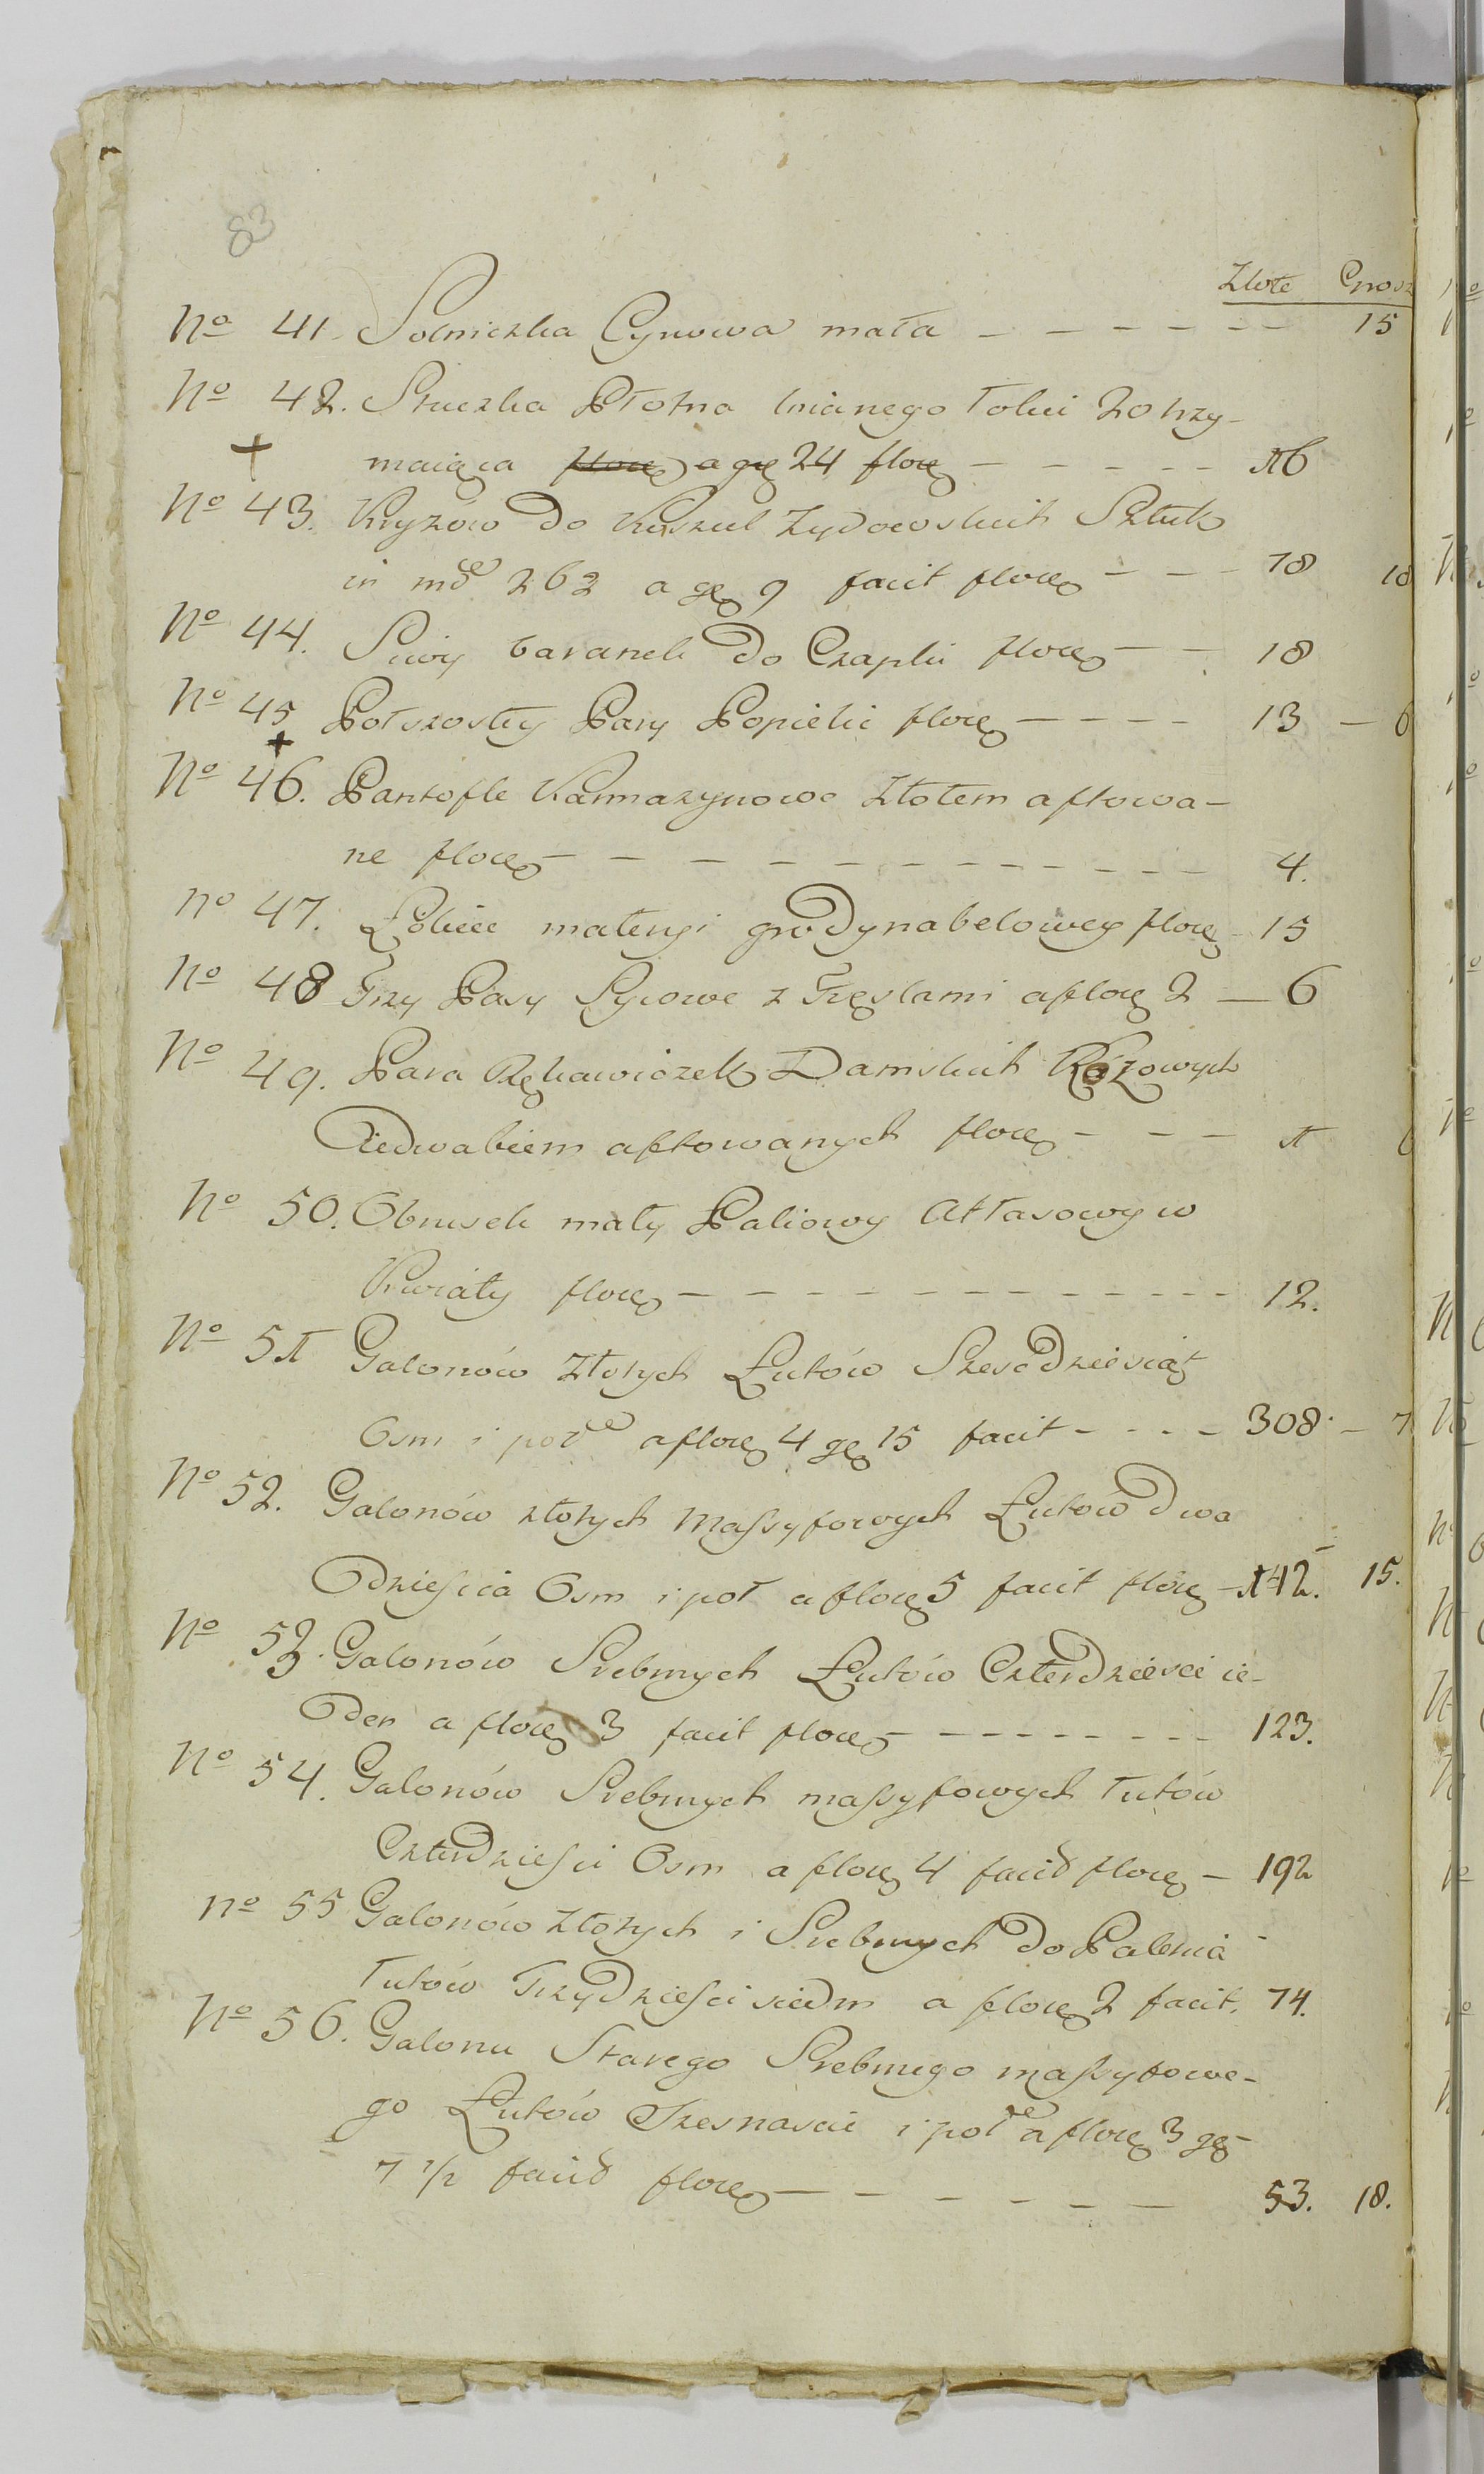 83
Złote Grosz
No 41. Solniczka Cynowa mała - - - - - - 15
No 42. Sztuczka Płotna lnianego Tokci 20 trzy-
+ maiąca a grę 24 flore - - - - - 16
No 43. Kryzów do Koszul Zydowskich Sztuk
in mde 262 a gę 9 facit flore - - - 78 18
No 44. Siwy baranek do Czapki flore - - 18
No 45 Połszosty Pary Popielic flore - - - - 13 - 6
+
No 46. Pantofle Karmazynowe Złotem aftowa-
ne flore - - - - - - - - - - 4.
No 47. Łokiec materyi grodynabelowey flore - 15
No 48 Trzy Pasy Sycowe z Fręzlami a flore 2 - 6
No 49. Para Rękawiczek Damskich Różowych
Jedwabiem aftowanych flore - - - 1
No 50. Obrusek mały Paliowy Atłasowy w
Kwiaty flore - - - - - - - - - - - 12.
No 51 Galonów złotych Łutów Szesćdziesiąt
Osm i poł a flore 4 gę 15 facit - - - - 308. - 7
No 52. Galonów złotych Massyfowych Łutów dwa
Dziescia Osm i poł a flore 5 facit flore - 142. 15.
No 53. Galonów Srebrnych Łutów Czterdziesci ie-
Den a flore 3 facit flore - - - - - - - - 123.
No 54. Galonów Srebrnych massyfowych Łutów
Czterdziesci Osm a flore 4 facit flore - 192
No 55 Galonów Złotych i Srebrnych do Palenia
Łutów Trzydziesci siedm a flore 2 facit. 74.
No 56. Galonu Starego Srebrnego massyfowe-
go Łutów Szesnascie i poł a flore 3 gę
7 1/2 facit flore - - - - - - 53. 18.